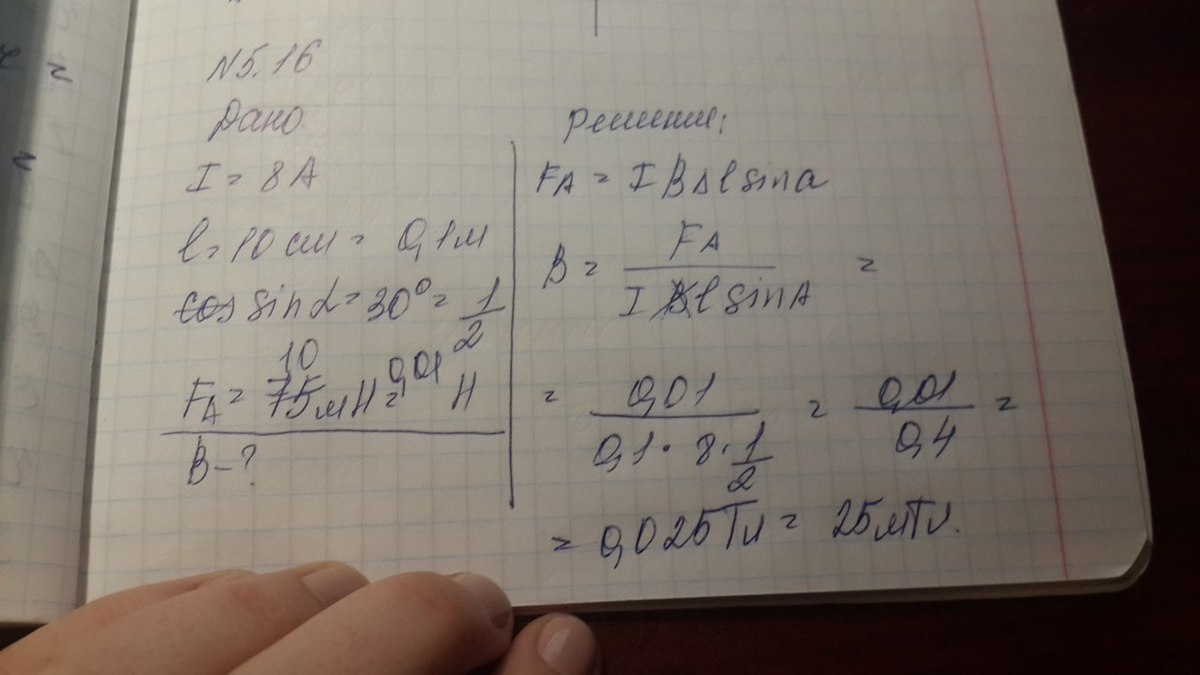 N 5.16
Дано
I = 8 А
l = 10 см = 0,1 м
cos sin α = 30° = 1/2
F_A = 75 10 мН = 0,01 Н
B - ?
Решение:
F_A = I B Δl sin a
B = F_A / (I B l sin A) =
= 0,01 / (0,1 · 8 · 1/2) = 0,01 / 0,4 =
= 0,025 Тл = 25 мТл.